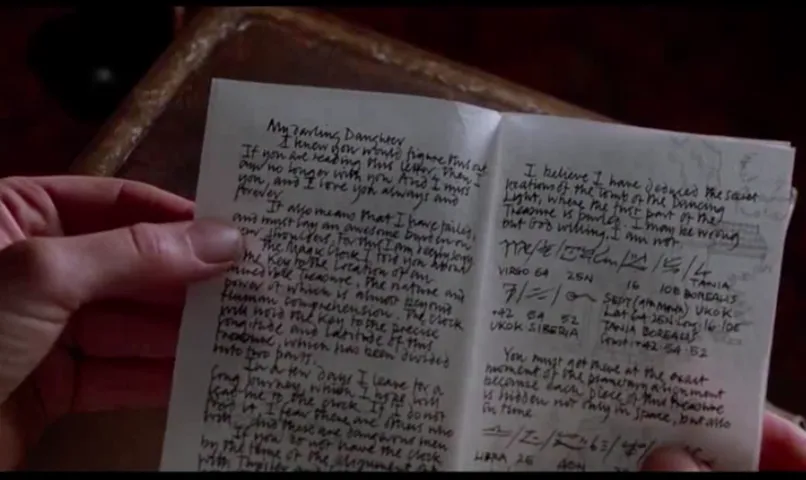 My Darling Daughter
I knew you would figure this out
If you are reading this letter, then I
am no longer with you. And I miss
you, and I love you always and
forever
It also means that I have failed,
and must lay an awesome burden on
your shoulders, for this I am very sorry
The Magic Clock I told you about
the Key to the location of an
incredible treasure, the nature and
power of which is almost beyond
human comprehension. The clock
will hold the key to the precise
longitude and latitude of this
treasure, which has been divided
into two parts.
In a few days I leave for a
long journey, which I hope will
lead me to the clock. If I do not
find it I fear there are others who
will and these are dangerous men
If you do not have the clock
by the time of the alignment
I believe I have deduced the secret
locations of the Tomb of the Dancing
Light, where the first part of the
Treasure is buried. I may be wrong
but God willing I am not
VIRGO 64 25N 16 10E TANIA BOREALIS
+42 54 52
UKOK SIBERIA
SEPT (GAMMA) UKOK
Lat 64 25N Long 16 10E
TANIA BOREALIS
Const +42 54 52
You must get there at the exact
moment of the planetary alignment
because each piece of this treasure
is hidden not only in space, but also
in time
LIBRA 25